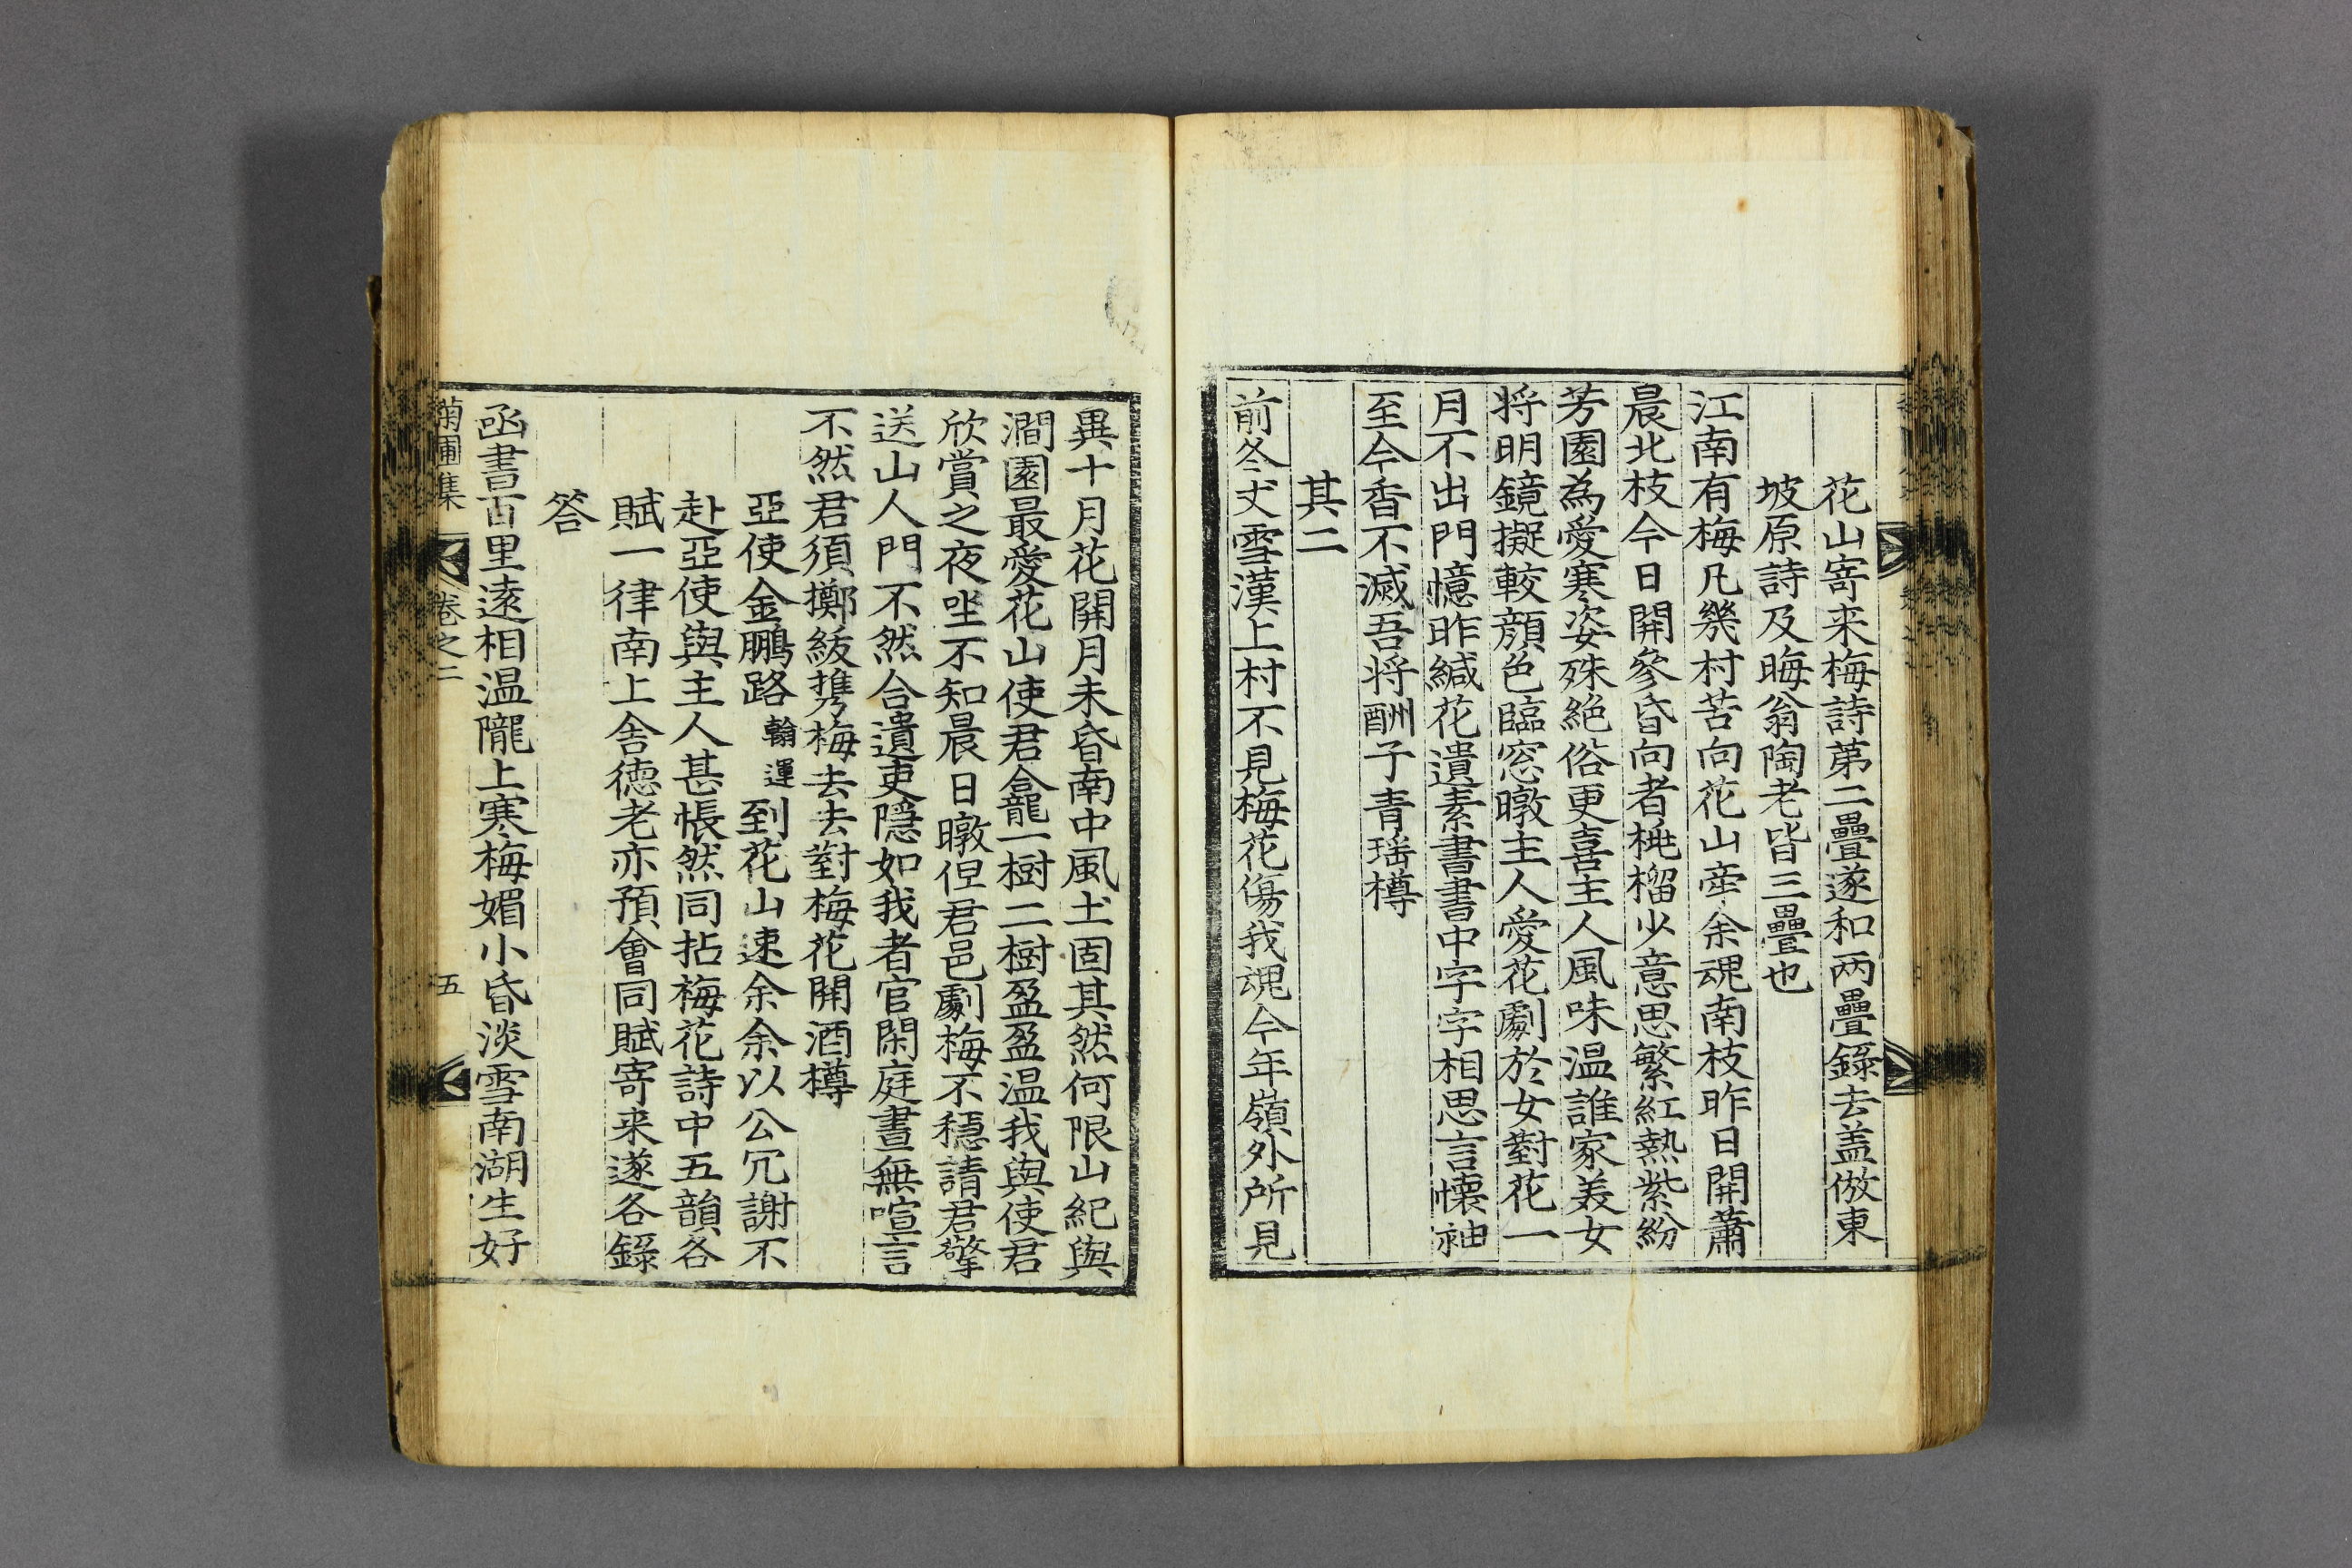 花山寄来梅詩第二疊遂和兩疊錄去盖倣東
坡原詩及晦翁陶老皆三疊也
江南有梅凡幾村苦向花山牽余魂南枝昨日開蕭
晨北枝今日開參昏向者桃榴少意思繁紅熱紫紛
芳園為愛寒姿殊絶俗更喜主人風味温誰家美女
将明鏡擬較顔色臨窓暾主人愛花劇於女對花一
月不出門憶昨緘花遺素書書中字字相思言懐袖
至今香不滅吾将酬子青瑶樽
其二
前冬丈雪漢上村不見梅花傷我魂今年嶺外所見
異十月花開月未昏南中風土固其然何限山紀與
澗園最愛花山使君龕一樹二樹盈盈温我與使君
欣賞之夜坐不知晨日暾但君邑劇梅不穩請君擎
送山人門不然合遺吏隠如我者官閑庭晝無喧言
不然君須擲紱携梅去去對梅花開酒樽
亞使金鵬路翰運到花山速余余以公冗謝不
赴亞使與主人甚悵然同拈梅花詩中五韻各
賦一律南上舍德老亦預會同賦寄来遂各錄
答
函書百里遠相温隴上寒梅媚小昏淡雪南湖生好
菊圃集
卷之二
五